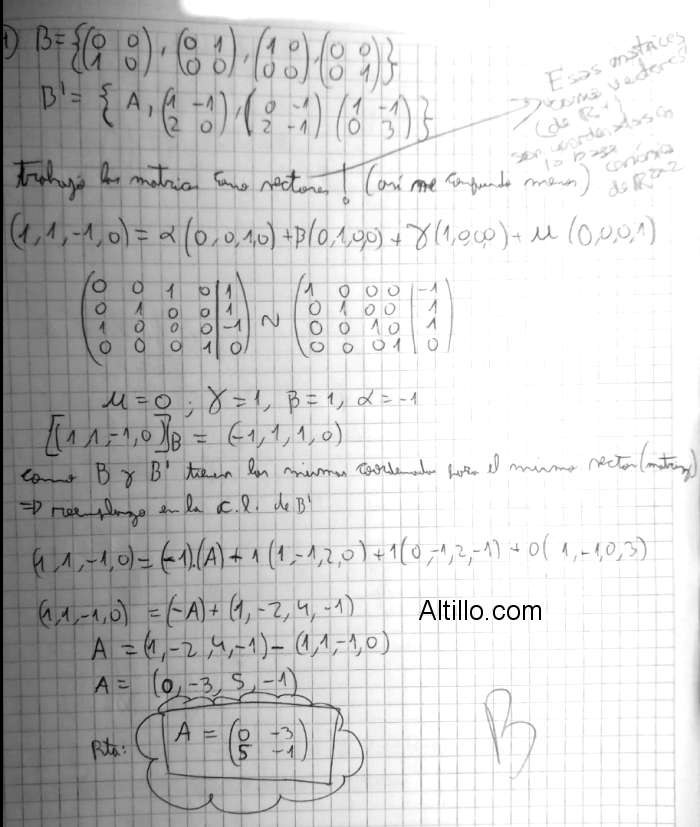 1) B = {(0 0 / 1 0), (0 1 / 0 0), (1 0 / 0 0), (0 0 / 0 1)}
B' = {A, (1 -1 / 2 0), (0 -1 / 2 -1) (1 -1 / 0 3)}
Esas matrices
como vectores
(de R⁴)
son coordenadas en
la base
canónica
de R²ˣ²
trabajo las matrices como vectores! (así me confundo menos)
(1, 1, -1, 0) = α(0,0,1,0) + β(0,1,0,0) + γ(1,0,0,0) + μ(0,0,0,1)
(0 0 1 0 | 1 / 0 1 0 0 | 1 / 1 0 0 0 | -1 / 0 0 0 1 | 0) ~ (1 0 0 0 | -1 / 0 1 0 0 | 1 / 0 0 1 0 | 1 / 0 0 0 1 | 0)
μ = 0 ; γ = 1, β = 1, α = -1
[(1,1,-1,0)]B = (-1,1,1,0)
como B y B' tienen las mismas coordenadas para el mismo vector (matriz)
⇒ reemplazo en la c.l. de B'
(1,1,-1,0) = (-1).(A) + 1(1,-1,2,0) + 1(0,-1,2,-1) + 0(1,-1,0,3)
(1,1,-1,0) = (-A) + (1,-2,4,-1)
Altillo.com
A = (1,-2,4,-1) - (1,1,-1,0)
A = (0,-3,5,-1)
Rta: A = (0 -3 / 5 -1)
B